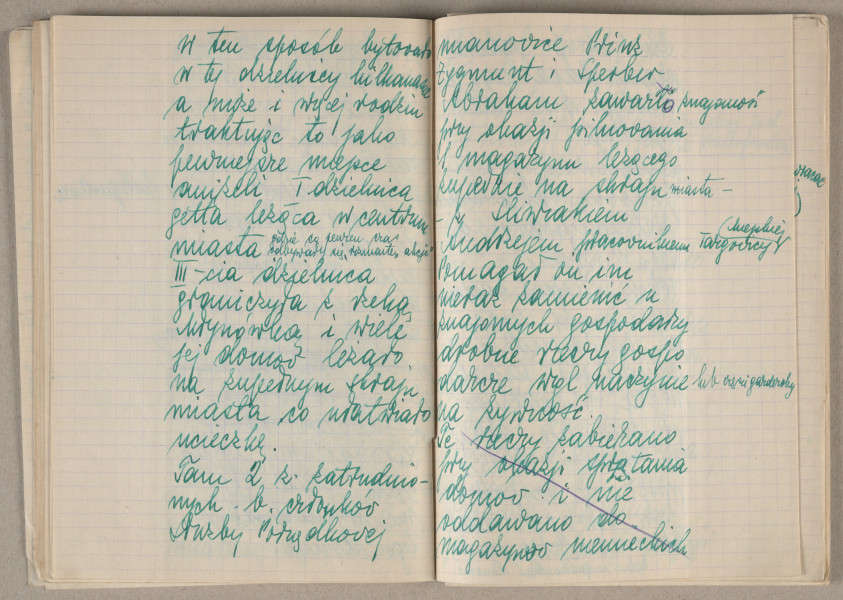 w ten sposób bytowało
w tej dzielnicy kilkanaście
a może i więcej rodzin
traktując to jako
pewniejsze miejsce
aniżeli I dzielnica
getta leżąca w centrum
miasta gdzie co pewien czas
odbywały się "rozmaite" akcje
III-cia dzielnica
graniczyła z rzeką
Młynówką i wiele
jej domów leżało
na zupełnym skraju
miasta co ułatwiało
ucieczkę.
Tam 2 z. zatrudnio-
nych b. członków
Służby Porządkowej
mianowice Prinz
Zygmunt i Sperber
Abraham zawarło znajomość
przy okazji pilnowania
magazynu leżącego
zupełnie na skraju miasta -
- z Śliwiakiem
Andrzejem pracownikiem Miejskiej
Targowicy
Pomagał on im
nieraz zamienić u
znajomych gospodarzy
drobne rzeczy gospo
darcze wzgl naczynie lub części garderoby
na żywność.
Te rzeczy zabierano
przy okazji sprzątania
domów i nie
oddawano do
magazynów niemieckich